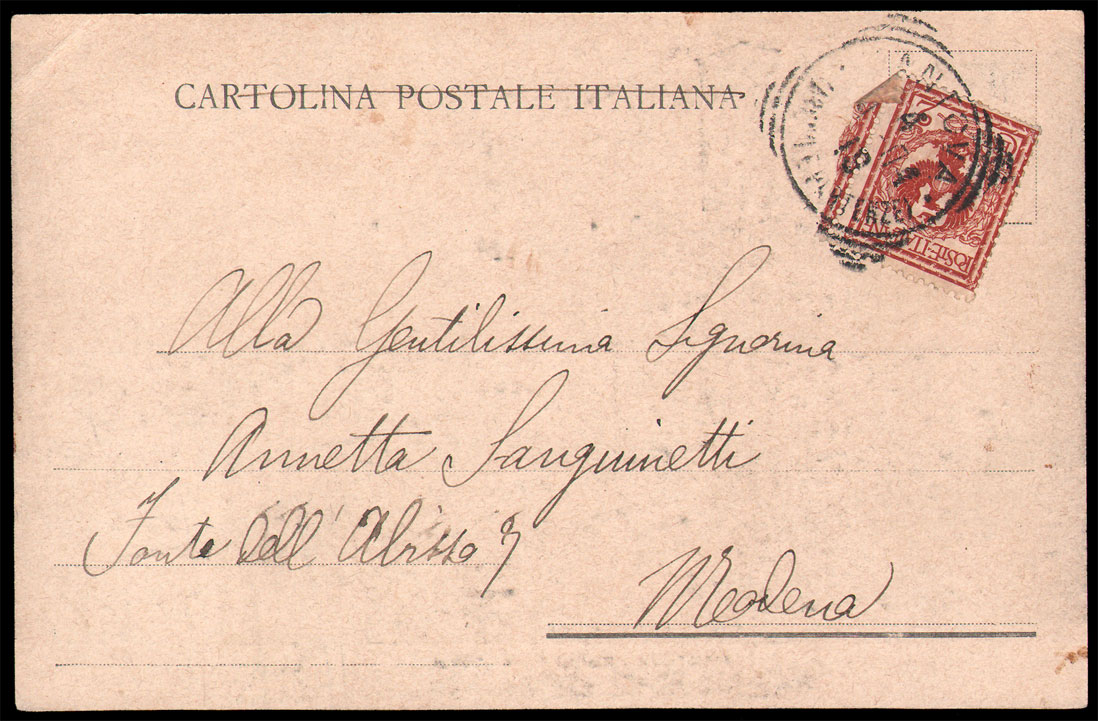 CARTOLINA POSTALE ITALIANA
POSTE·ITA
Alla Gentilissima Signorina
Annetta Sanguinetti
Fonte dell'Abisso 7
Modena